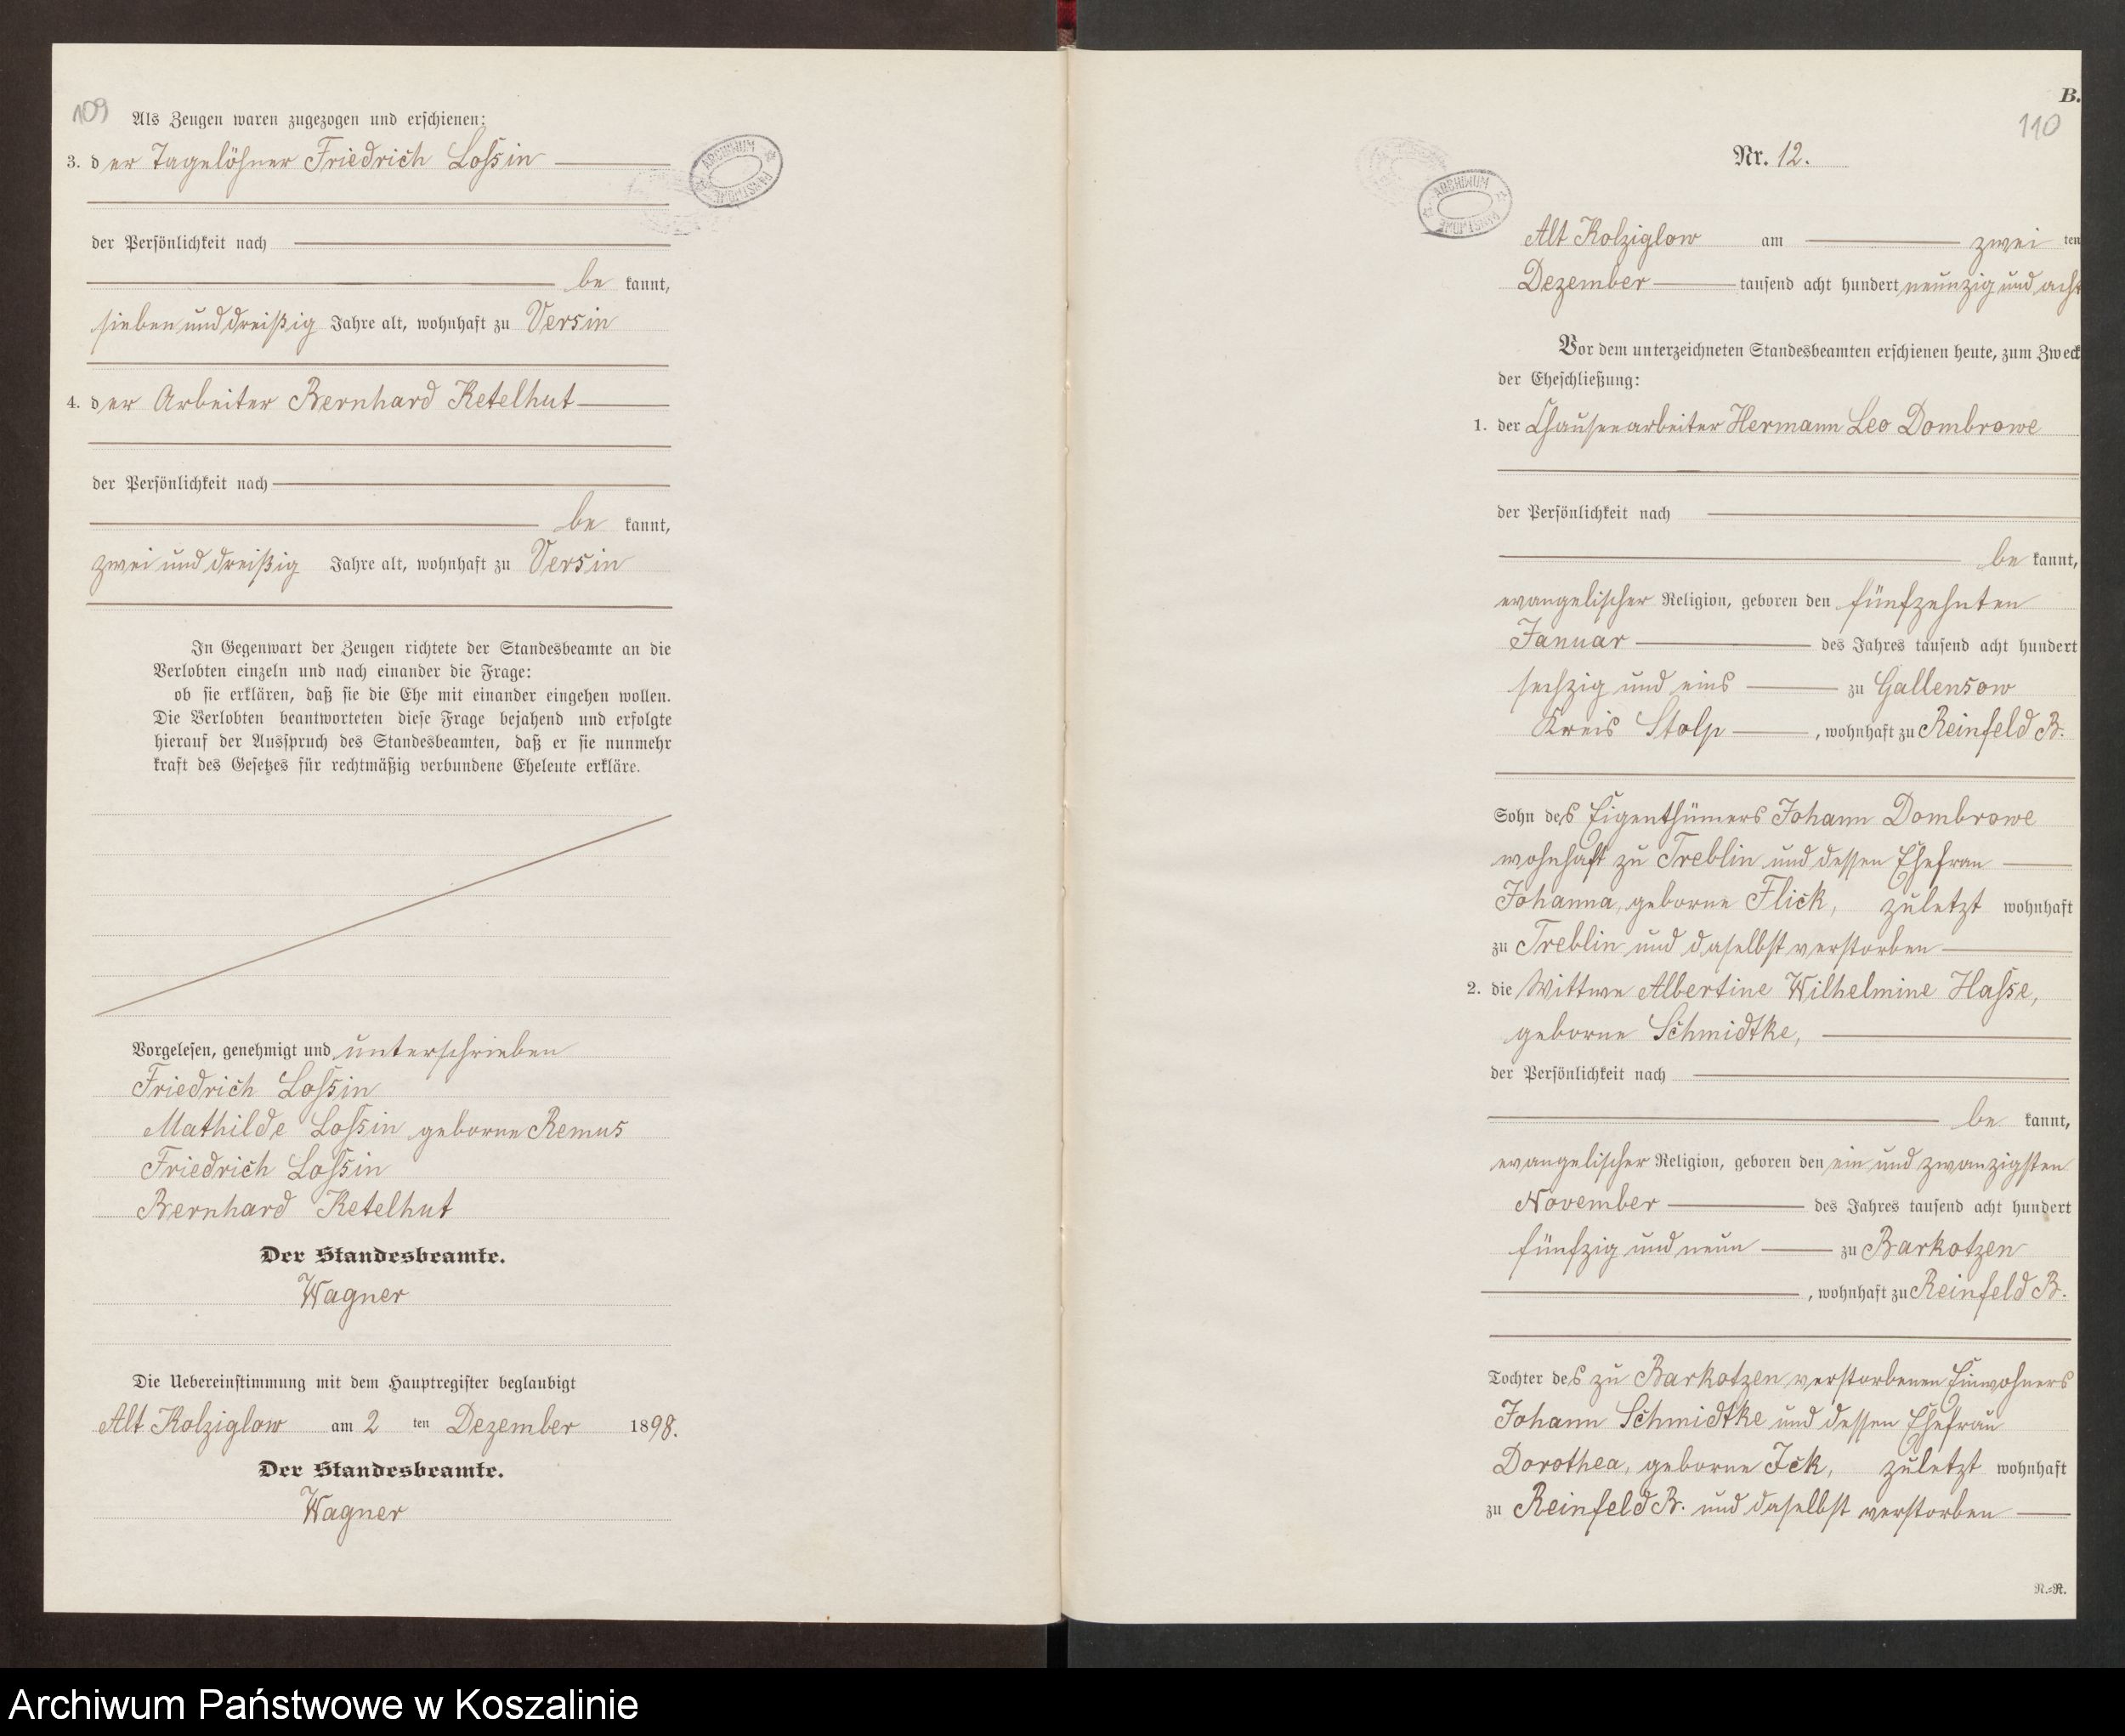 109
Als Zeugen waren zugezogen und erschienen:
3. der Tagelöhner Friedrich Lossin
der Persönlichkeit nach
be kannt,
sieben und dreißig Jahre alt, wohnhaft zu Versin
4. der Arbeiter Bernhard Ketelhut
der Persönlichkeit nach
be kannt,
zwei und dreißig Jahre alt, wohnhaft zu Versin
In Gegenwart der Zeugen richtete der Standesbeamte an die
Verlobten einzeln und nach einander die Frage:
ob sie erklären, daß sie die Ehe mit einander eingehen wollen.
Die Verlobten beantworteten diese Frage bejahend und erfolgte
hierauf der Ausspruch des Standesbeamten, daß er sie nunmehr
kraft des Gesetzes für rechtmäßig verbundene Eheleute erkläre.
Vorgelesen, genehmigt und unterschrieben
Friedrich Lossin
Mathilde Lossin geborne Remus
Friedrich Lossin
Bernhard Ketelhut
Der Standesbeamte.
Wagner
Die Uebereinstimmung mit dem Hauptregister beglaubigt
Alt Kolziglow am 2 ten Dezember 1898.
Der Standesbeamte.
Wagner
ARCHIWUM PAŃSTWOWE
B.
110
Nr. 12.
ARCHIWUM PAŃSTWOWE
Alt Kolziglow am zwei ten
Dezember tausend acht hundert neunzig und acht
Vor dem unterzeichneten Standesbeamten erschienen heute, zum Zweck
der Eheschließung:
1. der Chauseearbeiter Hermann Leo Dombrowe
der Persönlichkeit nach
be kannt,
evangelischer Religion, geboren den fünfzehnten
Januar des Jahres tausend acht hundert
sechzig und eins zu Gallensow
Kreis Stolp, wohnhaft zu Reinfeld B.
Sohn des Eigenthümers Johann Dombrowe
wohnhaft zu Treblin und dessen Ehefrau
Johanna, geborne Flick, zuletzt wohnhaft
zu Treblin und daselbst verstorben
2. die Wittwe Albertine Wilhelmine Hasse,
geborne Schmidtke,
der Persönlichkeit nach
be kannt,
evangelischer Religion, geboren den ein und zwanzigsten
November des Jahres tausend acht hundert
fünfzig und neun zu Barkotzen
, wohnhaft zu Reinfeld B.
Tochter des zu Barkotzen verstorbenen Einwohners
Johann Schmidtke und dessen Ehefrau
Dorothea, geborne Ick, zuletzt wohnhaft
zu Reinfeld B. und daselbst verstorben
R.=R.
Archiwum Państwowe w Koszalinie